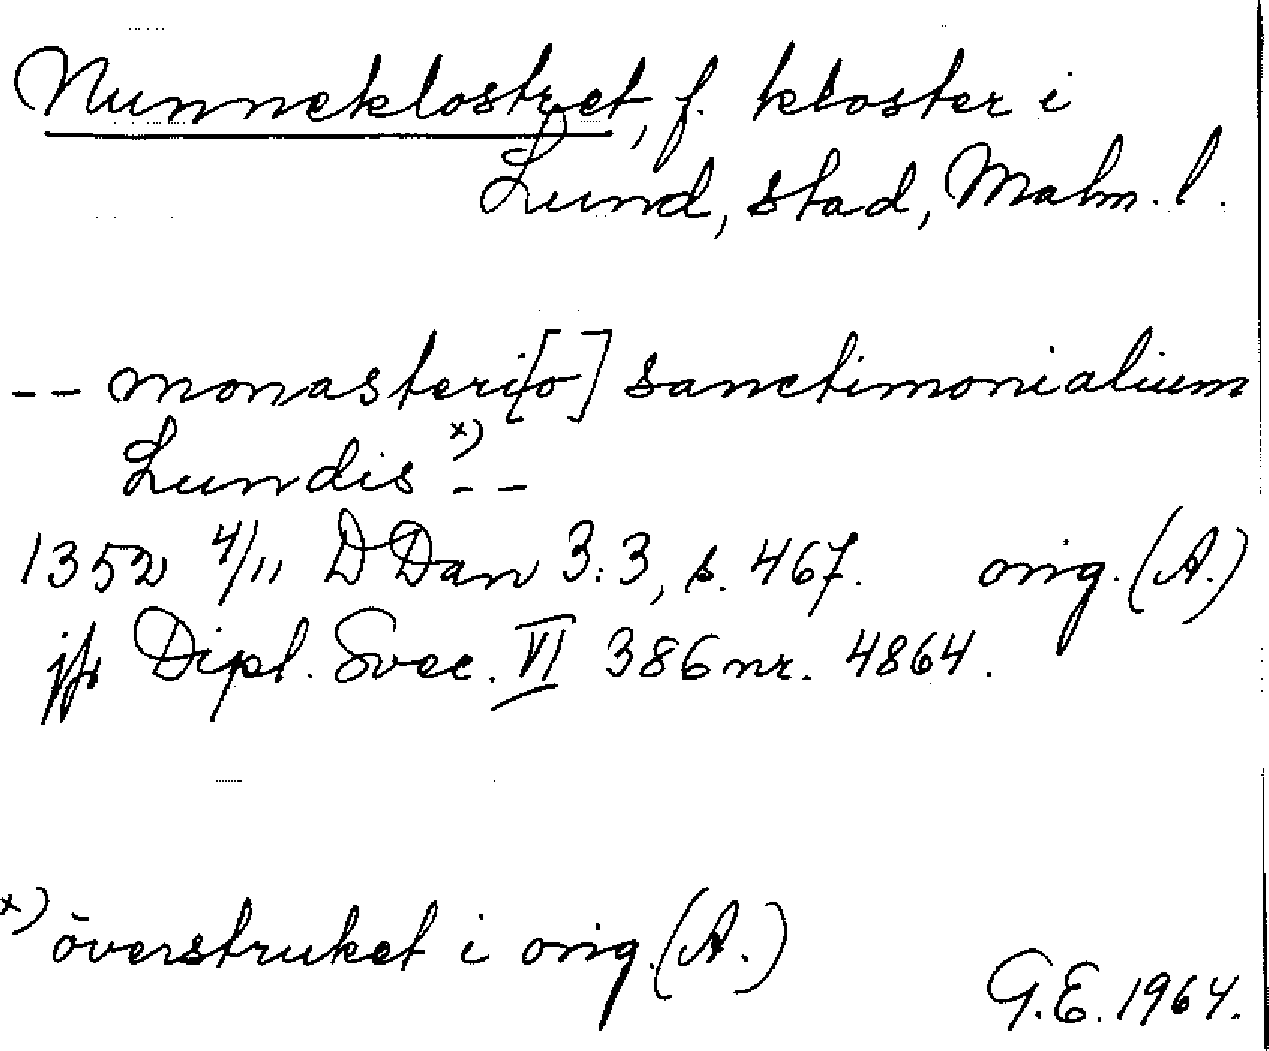 Nunneklostret, f. kloster i
Lund, stad, Malm. l.
-- monasteri[o] sanctimonialium
Lundis x) --
1352 4/11 D Dan 3:3, s. 467. orig. (A.)
jfr Dipl. Svec. VI 386 nr. 4864.
x) överstruket i orig. (A.)
G.E. 1964.